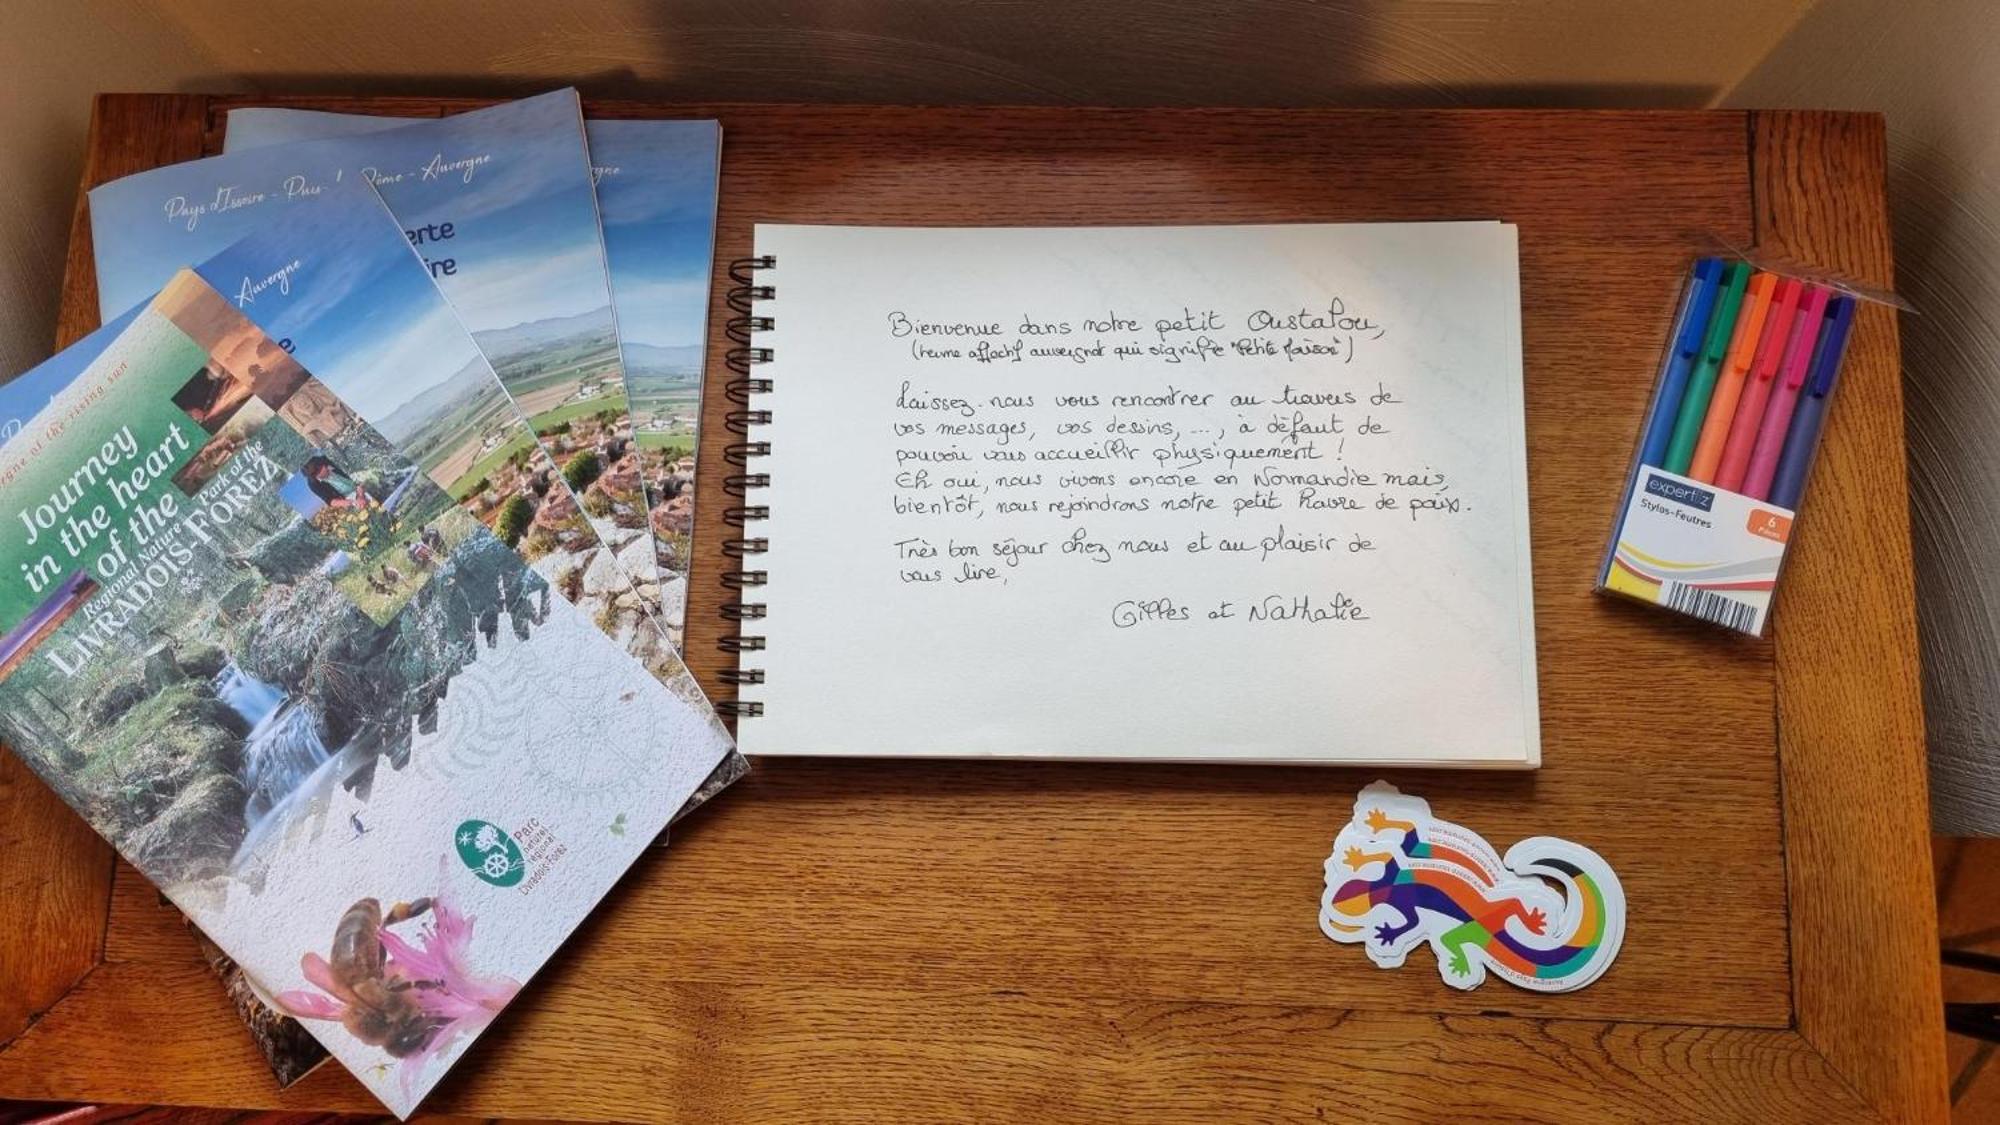 Pays d'Issoire - Puy- Dôme - Auvergne
erte
ire
Auvergne
e
rgne of the rising sun
Journey
in the heart
of the
Regional Nature Park of the
LIVRADOIS-FOREZ
Parc
naturel
régional
Livradois-Forez
Bienvenue dans notre petit Oustalou,
(terme affectif auvergnat qui signifie "Petite Maison")
Laissez-nous vous rencontrer au travers de
vos messages, vos dessins, ..., à défaut de
pouvoir vous accueillir physiquement !
Eh oui, nous vivons encore en Normandie mais,
bientôt, nous rejoindrons notre petit havre de paix.
Très bon séjour chez nous et au plaisir de
vous lire,
Gilles et Nathalie
expertiz
Stylos-Feutres
6